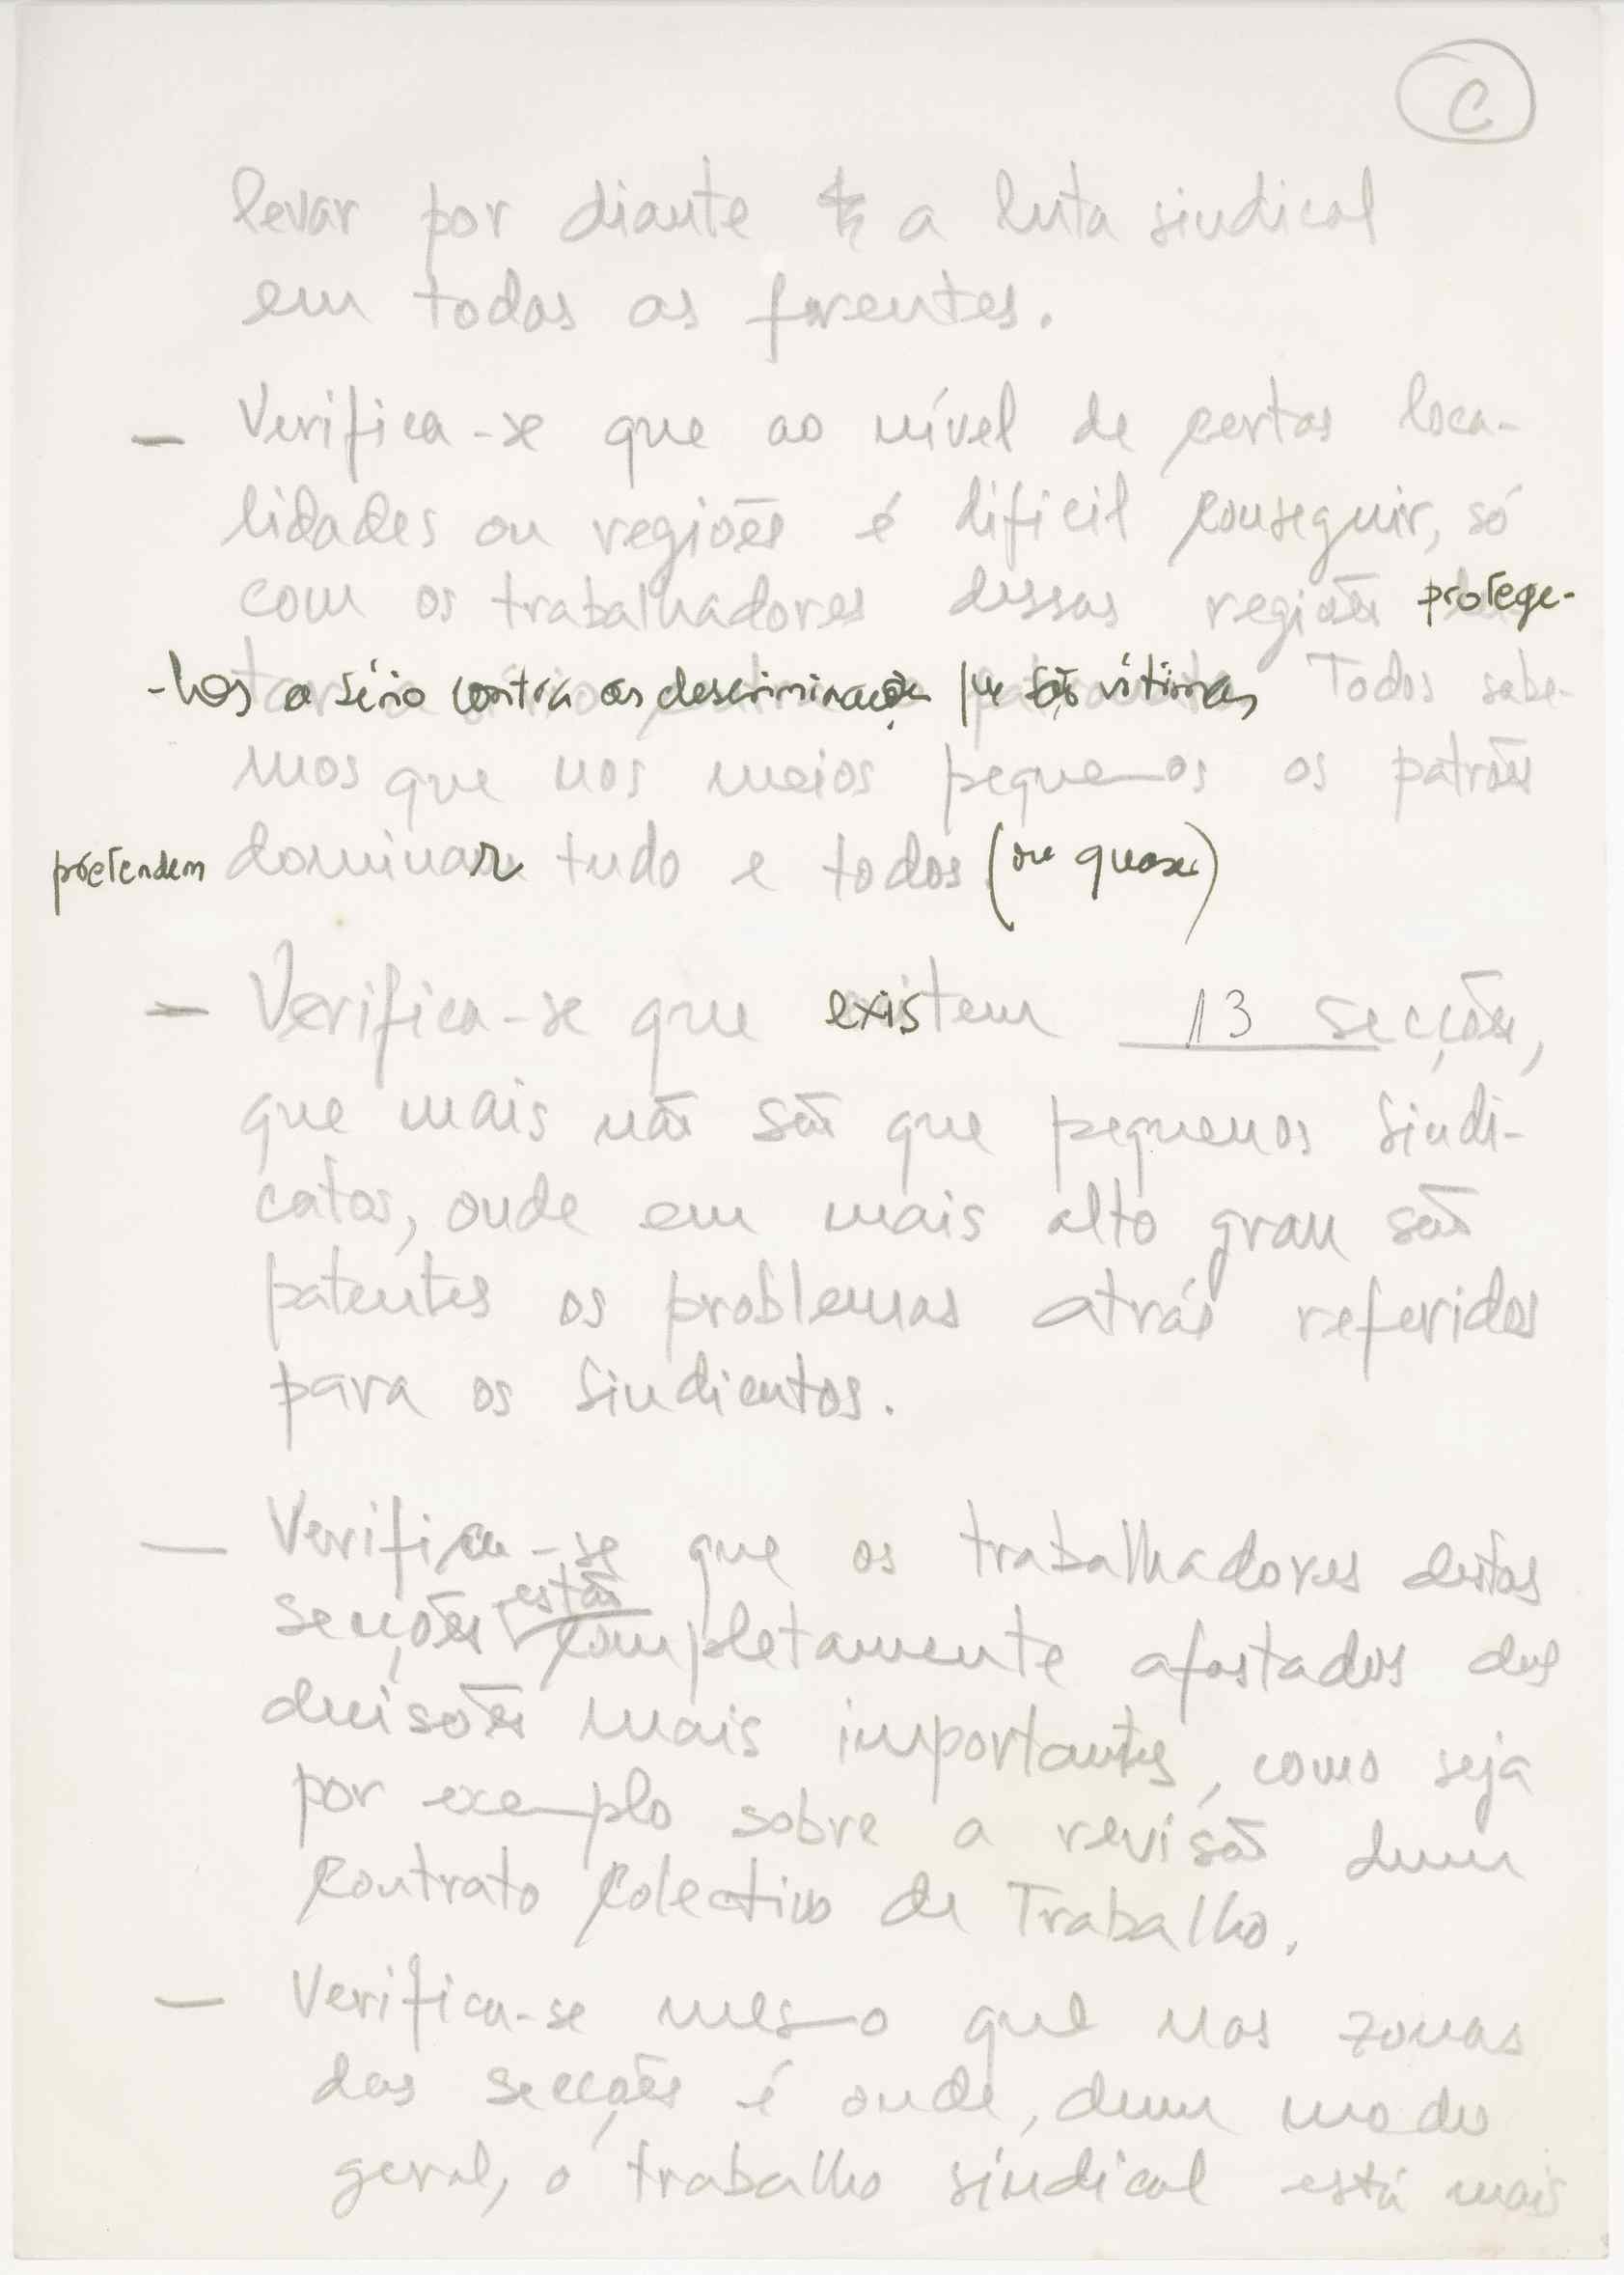 C
levar por diante a luta sindical
em todas as frentes.
— Verifica-se que ao nível de certas loca-
lidades ou regiões é dificil conseguir, só
com os trabalhadores dessas regiões protege-
-los a sério contra as descriminações que são vítimas Todos sabe-
mos que nos meios pequenos os patrões
pretendem dominar tudo e todos (ou quase)
— Verifica-se que existem 13 secções,
que mais não são que pequenos Sindi-
catos, onde em mais alto grau são
patentes os problemas atrás referidos
para os Sindicatos.
— Verifica-se que os trabalhadores destas
secções estão completamente afastados das
decisões mais importantes, como seja
por exemplo sobre a revisão dum
Contrato Colectivo de Trabalho.
— Verifica-se mesmo que nas zonas
das secções é onde, dum modo
geral, o trabalho sindical está mais